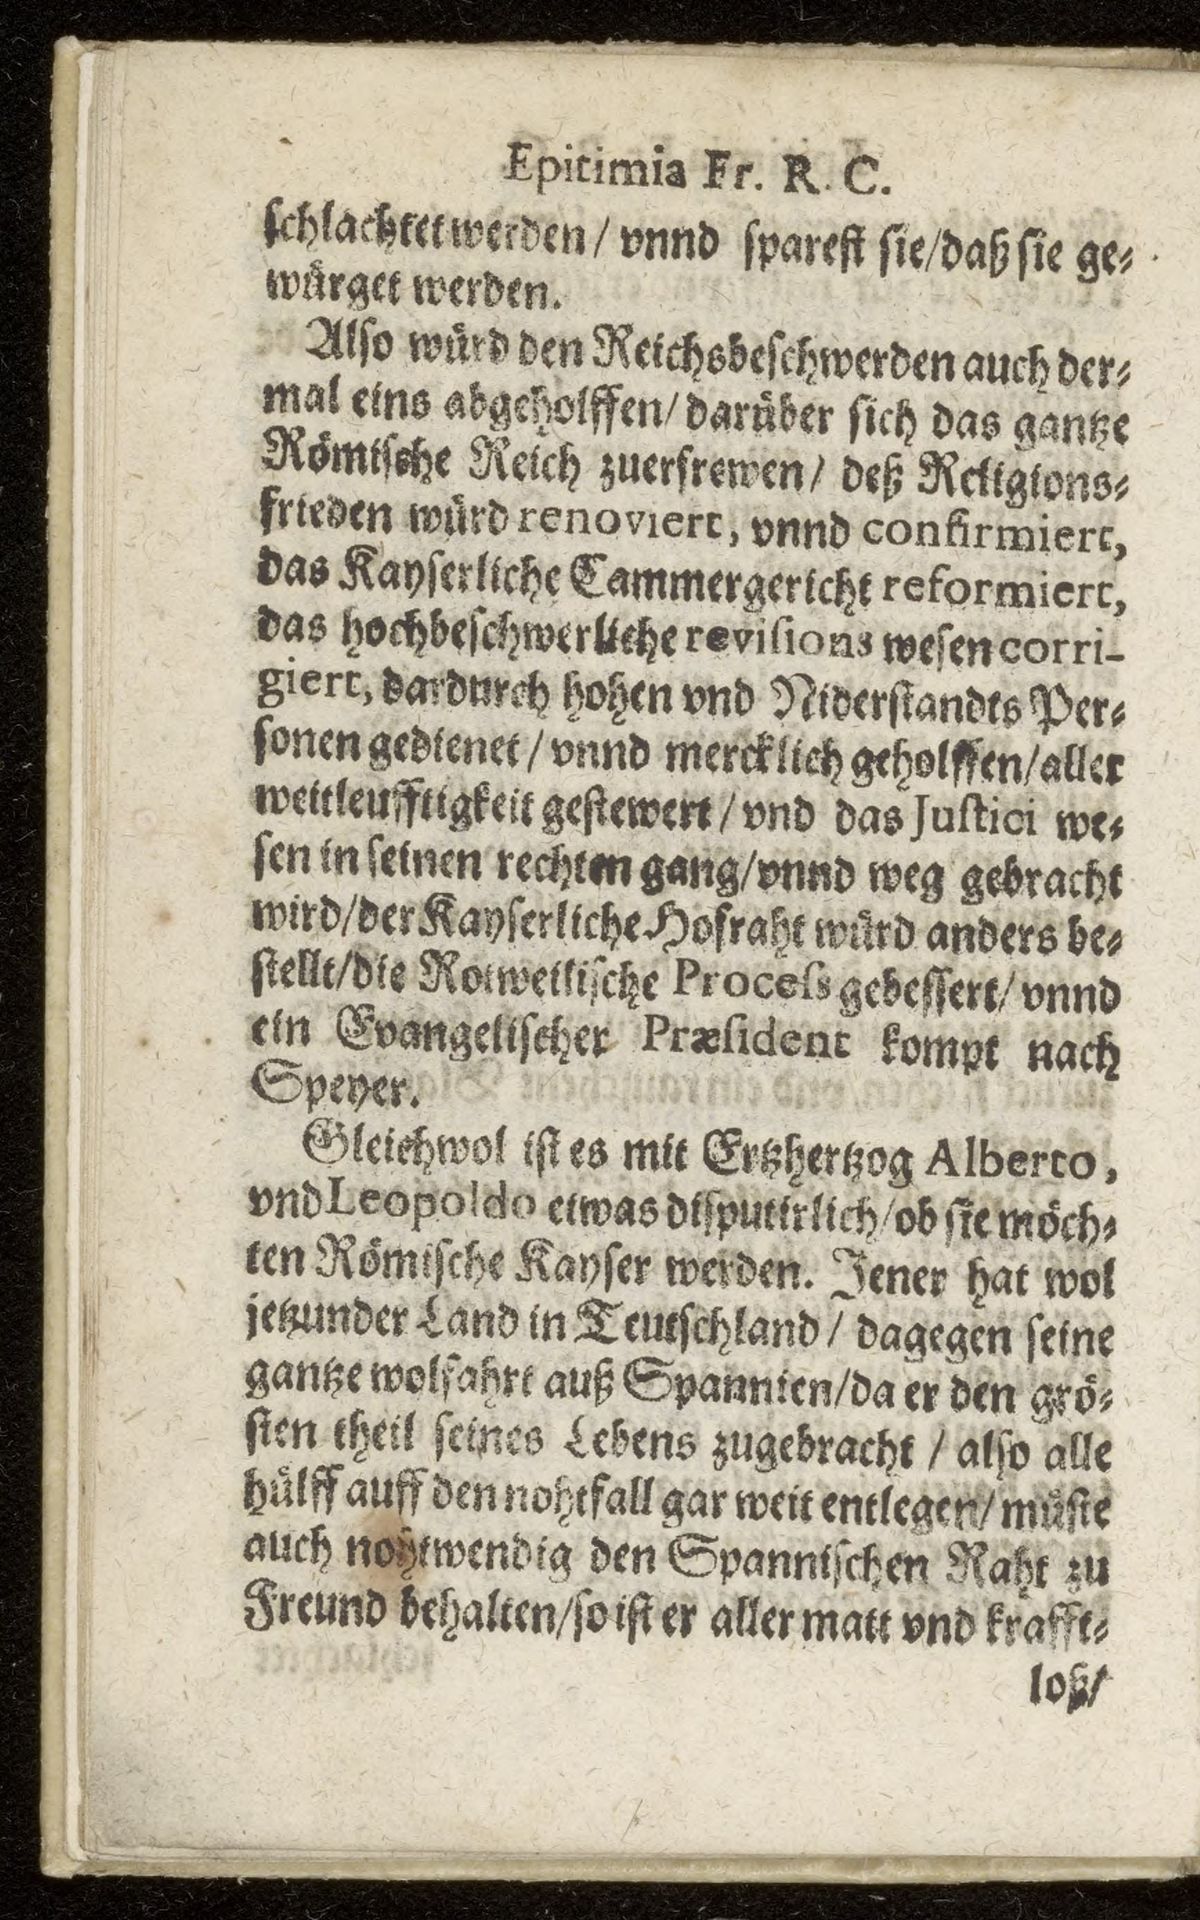 Epitimia Fr. R. C.
schlachtet werden / vnnd sparest sie / daß sie ge-
würget werden.
Also würd den Reichsbeschwerden auch der-
mal eins abgeholffen / darüber sich das gantze
Römische Reich zuerfrewen / deß Religions-
frieden würd renoviert, vnnd confirmiert,
das Kayserliche Cammergericht reformiert,
das hochbeschwerliche revisions wesen corri-
giert, dardurch hohen vnd Niderstandts Per-
sonen gedienet / vnnd mercklich geholffen / aller
weitleufftigkeit gestewert / vnd das Justici we-
sen in seinen rechten gang / vnnd weg gebracht
wird / der Kayserliche Hofraht würd anders be-
stellt / die Rotweilische Process gebessert / vnnd
ein Evangelischer Præsident kompt nach
Speyer.
Gleichwol ist es mit Ertzhertzog Alberto,
vnd Leopoldo etwas disputirlich / ob sie möch-
ten Römische Kayser werden. Jener hat wol
jetzunder Land in Teutschland / dagegen seine
gantze wolfahrt auß Spannien / da er den grö-
sten theil seines Lebens zugebracht / also alle
hülff auff den nohtfall gar weit entlegen / müste
auch nohtwendig den Spannischen Raht zu
Freund behalten / so ist er aller matt vnd krafft-
loß /